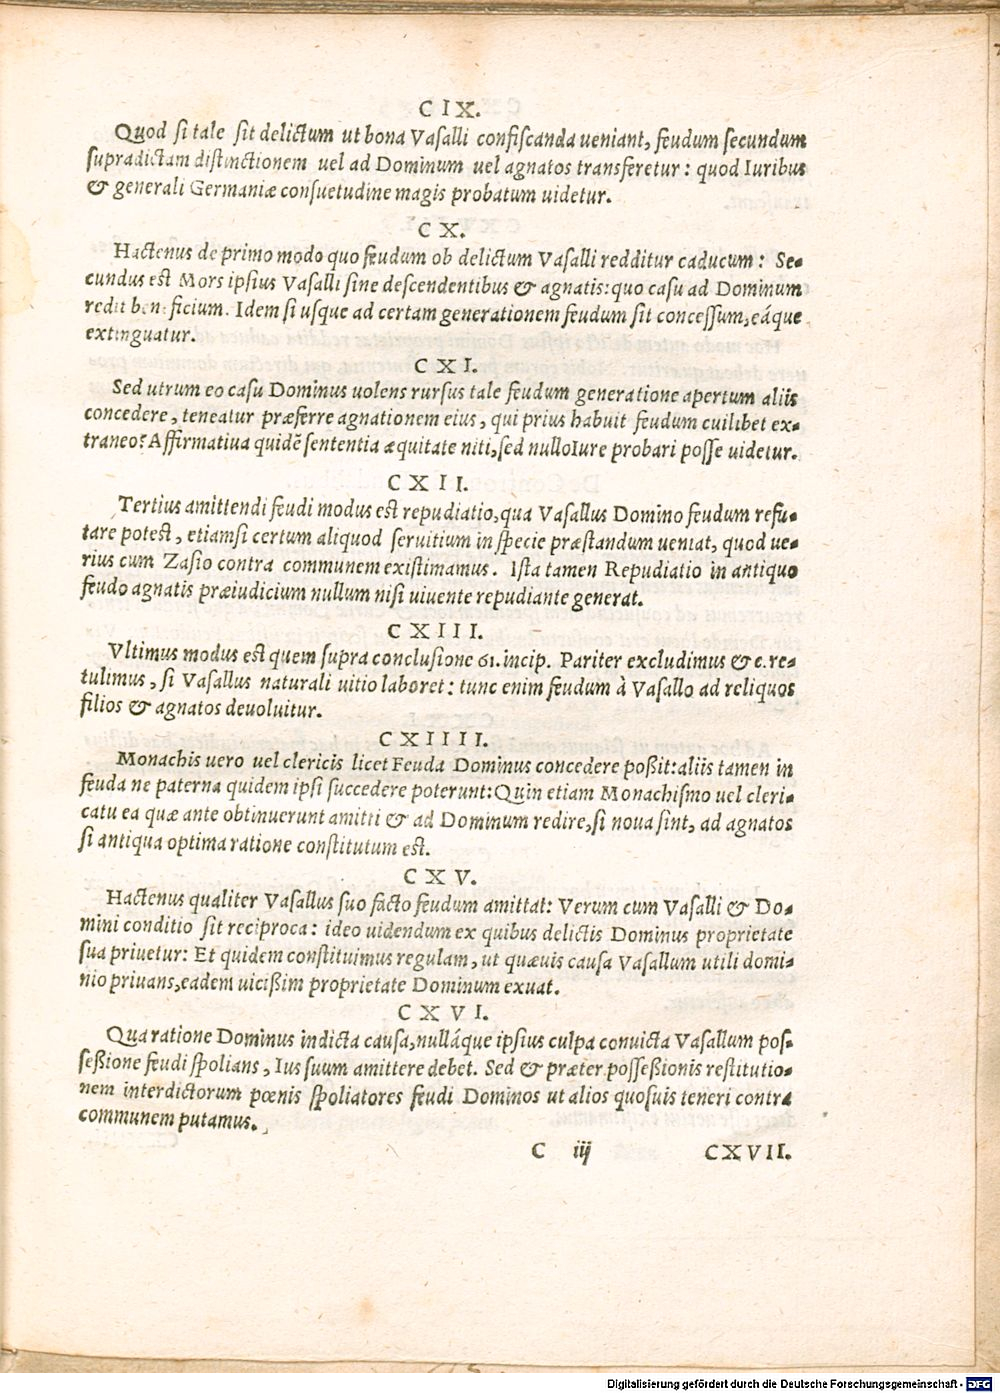 CIX.
Quod si tale sit delictum ut bona Vasalli confiscanda ueniant, feudum secundum
supradictam distinctionem uel ad Dominum uel agnatos transferetur: quod Iuribus
& generali Germaniæ consuetudine magis probatum uidetur.
CX.
Hactenus de primo modo quo feudum ob delictum Vasalli redditur caducum: Se-
cundus est Mors ipsius Vasalli sine descendentibus & agnatis: quo casu ad Dominum
redit beneficium. Idem si usque ad certam generationem feudum sit concessum, eáque
extinguatur.
CXI.
Sed utrum eo casu Dominus uolens rursus tale feudum generatione apertum aliis
concedere, teneatur præferre agnationem eius, qui prius habuit feudum cuilibet ex-
traneo? Affirmatiua quidẽ sententia æquitate niti, sed nullo Iure probari posse uidetur.
CXII.
Tertius amittendi feudi modus est repudiatio, qua Vasallus Domino feudum refu-
tare potest, etiamsi certum aliquod seruitium in specie præstandum ueniat, quod ue-
rius cum Zasio contra communem existimamus. Ista tamen Repudiatio in antiquo
feudo agnatis præiudicium nullum nisi uiuente repudiante generat.
CXIII.
Vltimus modus est quem supra conclusione 61. incip. Pariter excludimus & c. re-
tulimus, si Vasallus naturali uitio laboret: tunc enim feudum à Vasallo ad reliquos
filios & agnatos deuoluitur.
CXIIII.
Monachis uero uel clericis licet Feuda Dominus concedere poßit: aliis tamen in
feuda ne paterna quidem ipsi succedere poterunt: Quin etiam Monachismo uel cleri-
catu ea quæ ante obtinuerunt amitti & ad Dominum redire, si noua sint, ad agnatos
si antiqua optima ratione constitutum est.
CXV.
Hactenus qualiter Vasallus suo facto feudum amittat: Verum cum Vasalli & Do-
mini conditio sit reciproca: ideo uidendum ex quibus delictis Dominus proprietate
sua priuetur: Et quidem constituimus regulam, ut quæuis causa Vasallum utili domi-
nio priuans, eadem uicißim proprietate Dominum exuat.
CXVI.
Qua ratione Dominus indicta causa, nulláque ipsius culpa conuicta Vasallum pos-
seßione feudi spolians, Ius suum amittere debet. Sed & præter posseßionis restitutio-
nem interdictorum pœnis spoliatores feudi Dominos ut alios quosuis teneri contra
communem putamus.
C iij CXVII.
Digitalisierung gefördert durch die Deutsche Forschungsgemeinschaft - DFG